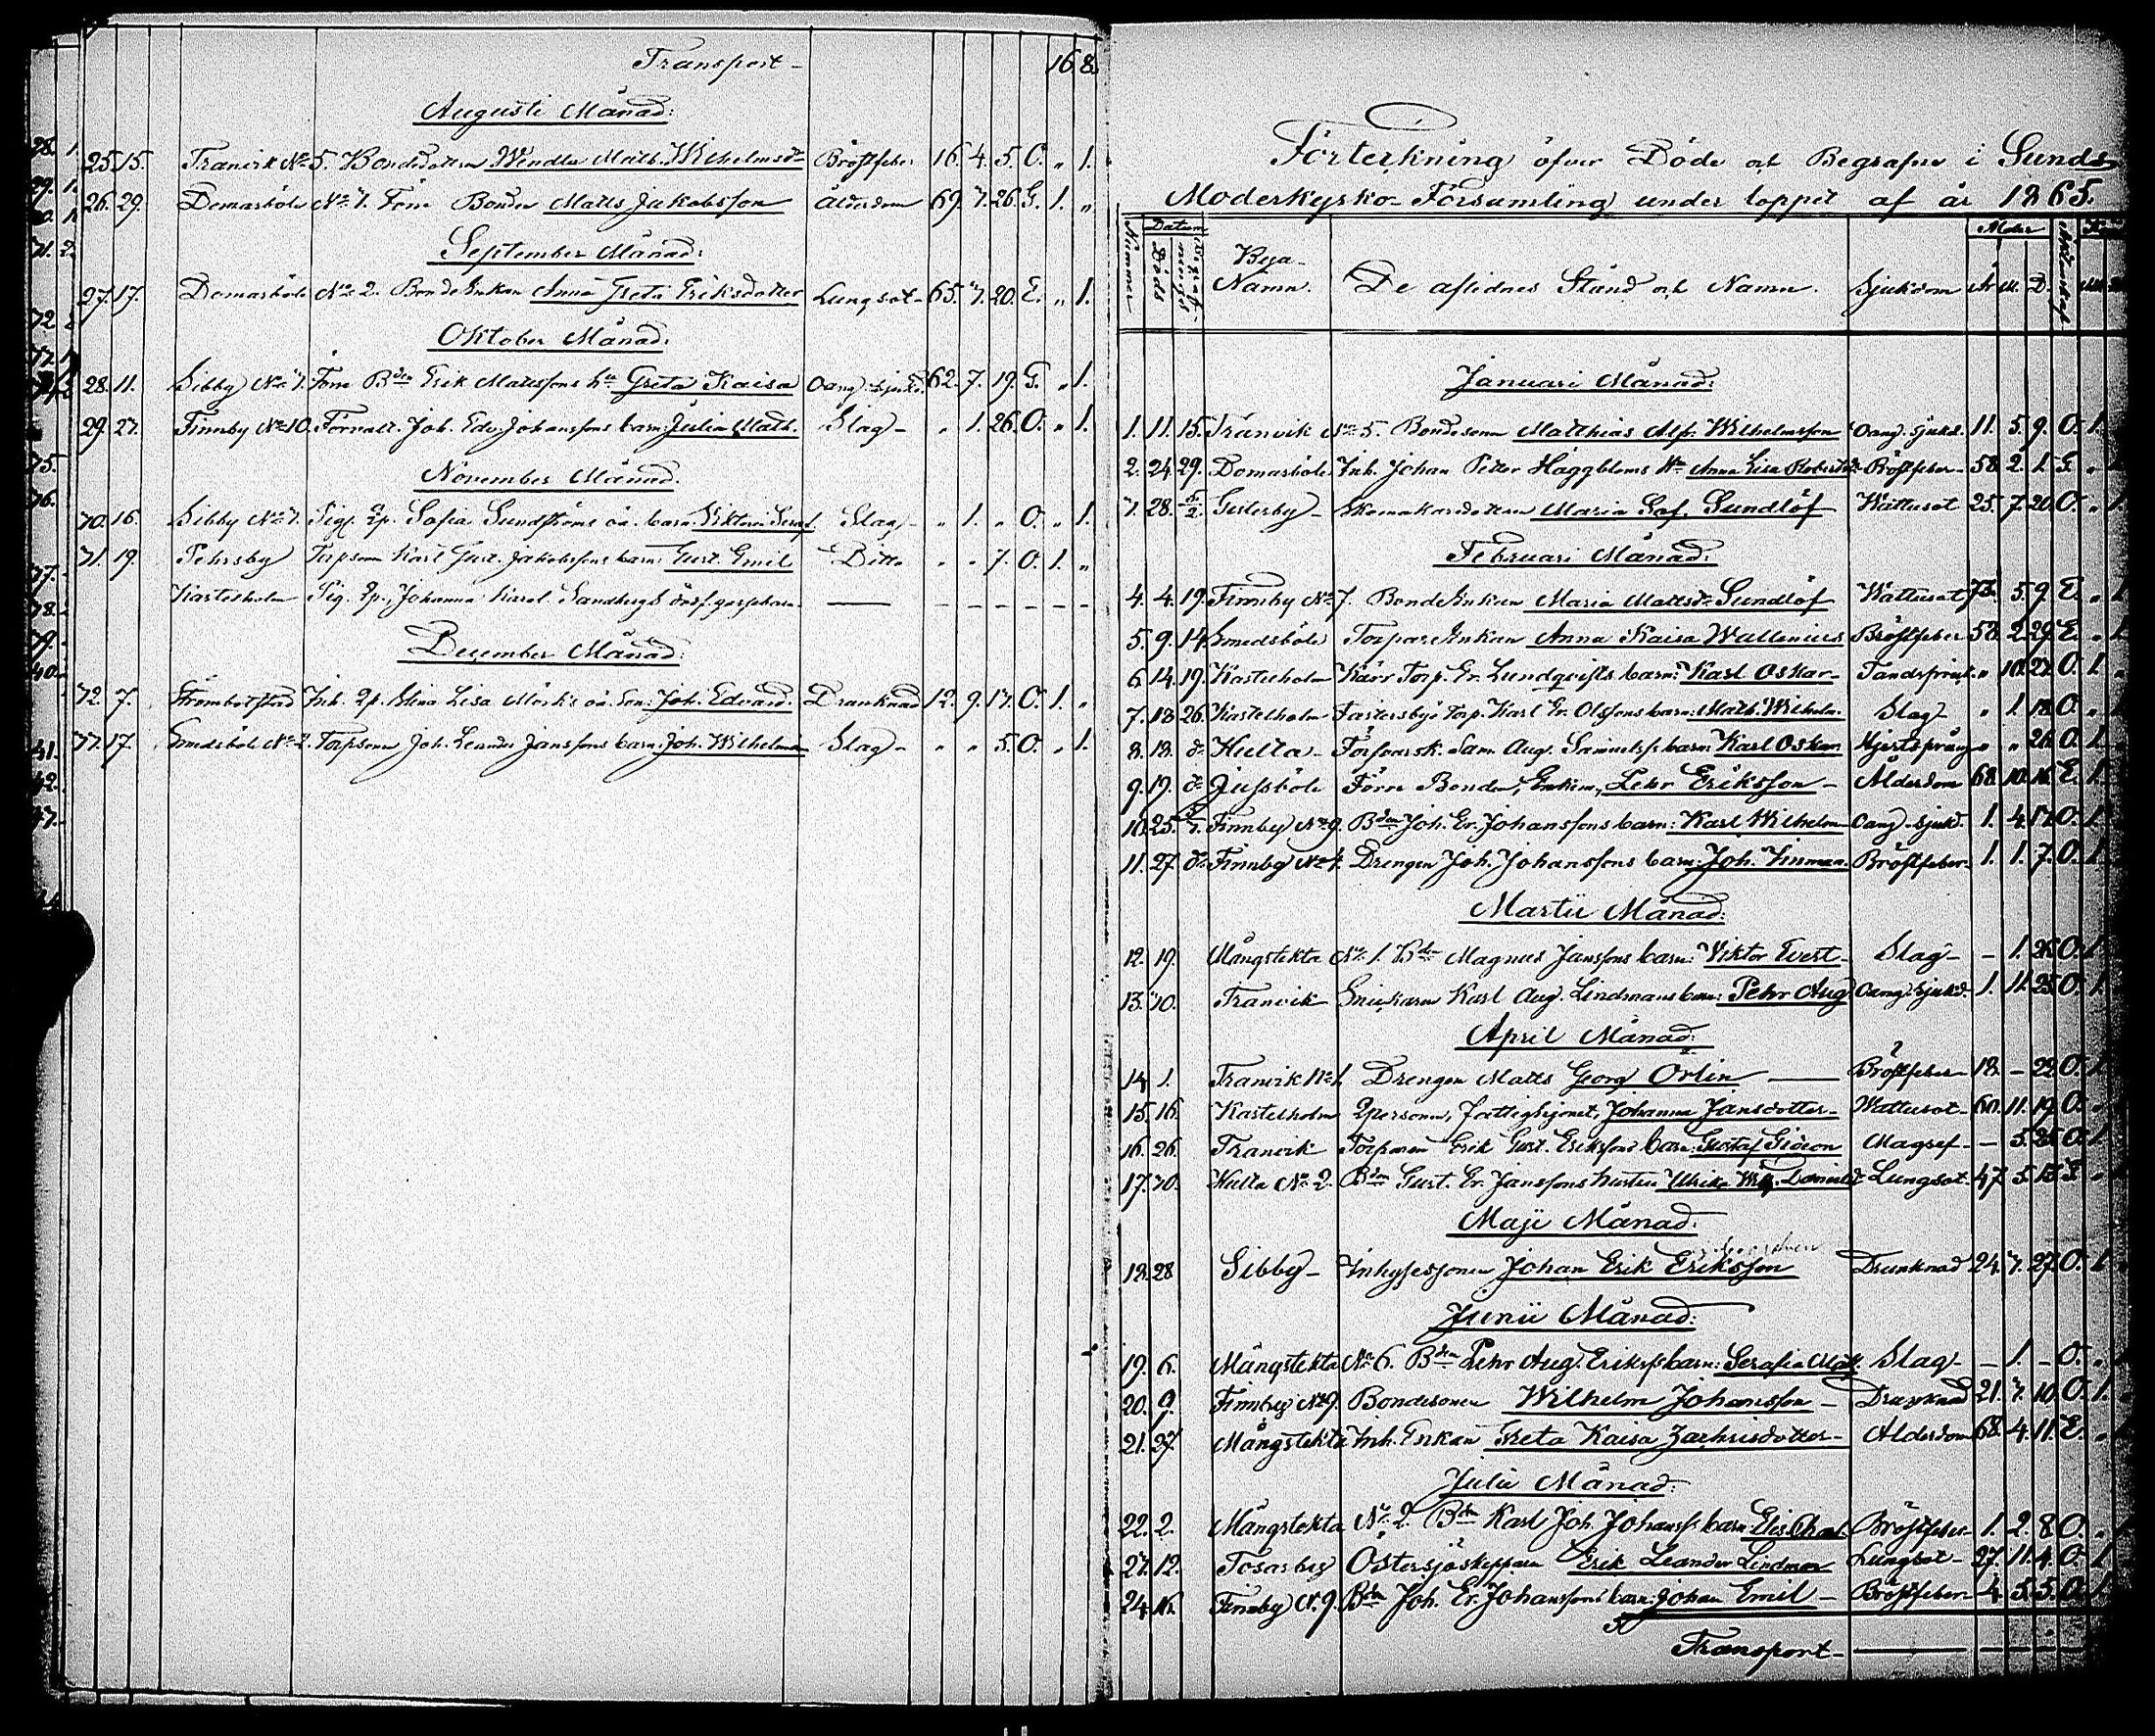 Transport - 16 8.
Augusti Månad:
25. 15. Tranvik No 5. Bondedottern Wendla Math. Wilhelmsdr Bröstfeber 16. 4. 5. O. " 1.
26. 29. Domarböle No 3. Förre Bonden Matts Jakobsson Ålderdom 69. 3. 26. G. 1. "
September Månad:
27. 17. Domarböle No 2. BondeEnkan Anna Greta Eriksdotter Lungsot - 65. 3. 20. E. " 1.
Oktober Månad.
28. 11. Sibby No 3. Förre Bden Erik Mattssons hu Greta Kaisa Oang. sjukd. 62. 7. 19. G. " 1.
29. 27. Finnby No 10. Förvalt. Joh. Edv. Johanssons barn: Julia Math. Slag - " 1. 26. O. " 1.
November Månad.
30. 16. Sibby No 3. Pig. Qp. Sofia Sundströms oä. barn: Viktori Seraf. Slag - " 1. " O. " 1.
31. 19. Pehrsby Torpson Karl Gust. Jakobssons barn: Gust. Emil Ditto " " 7. O. 1. "
Kastelholm Pig. Qp. Johanna Karol. Sandbergs gossebarn -
December Månad:
32. 7. Strömbotstorp Inh. Qp. Stina Lisa Mörk's oä. Son: Joh. Edvard. Drunknad 12. 9. 13. O. 1. "
33. 17. Smedsböle No 2. Torpsonen Joh. Leander Janssons barn: Joh. Wilhelmina Slag - " " 5. O. " 1.
Förteckning öfver Döde och Begrafne i Sunds
Moderkyrko-Församling under loppet af år 1865.
Nummer Datum Döds Begrafningens Bya-Namn. De aflidnes Stånd och Namn. Sjukdom Ålder År M. D.
Januari Månad:
1. 11. 15. Tranvik No 5. Bondesonen Matthias Alfr. Wilhelmsson Oang. sjukd. 11. 5. 9. O. 1.
2. 24. 29. Domarböle Inh. Johan Petter Häggbloms hu Anna Lisa Robertsdr Bröstfeber - 58. 2. 1. G. " 1
3. 28. 5/2. Gesterby - Skomakaredottern Maria Sof. Sundlöf Wattusot 25. 7. 20. O. " 1.
Februari Månad:
4. 4. 19. Finnby No 7. BondeEnkan Maria Mattsdr Sundlöf Wattusot 73. 5. 9. E. " 1.
5. 9. 14. Smedsböle TorpareEnkan Anna Kaisa Wallenius Bröstfeber 58. 2. 29. E. " 1.
6. 14. 19. Kastelholm Kärr Torp. Er. Lundqvists barn: Karl Oskar - Tandsprick. " 10. 27. O. 1. "
7. 18. 26. Kastelholm Fastersbyö Torp. Karl Er. Olssons barn: Math. Wilhelm. Slag - " 1. 18. O. " 1
8. 18. do Hulta - Försvarsk. Sam. Aug. Samuelss. barn: Karl Oskar Hjertsprång " " 26. O. 1.
9. 19. do Jussböle Förre Bonden, Enkem., Pehr Eriksson - Ålderdom 68. 10. 16. E. 1.
10. 25. 5/3. Finnby No 9. Bden Joh. Er. Johanssons barn: Karl Wilhelm Oang. sjukd. 1. 4. 17. O. 1.
11. 27. do Finnby No 4. Drengen Joh. Johanssons barn: Joh. Finman. Bröstfeber - 1. 1. 7. O. 1.
Martii Månad:
12. 19. Mångstekta No 1. Bden Magnus Janssons barn: Viktor Evert - Slag - - 1. 26. O. 1.
13. 30. Tranvik Snickaren Karl Aug. Lindmans barn: Pehr Aug. Oang. sjukd. 1. 11. 25. O. 1.
April Månad:
14. 1. Tranvik No 1. Drengen Matts Georg Orlin - Bröstfeber - 18. - 22. O. 1.
15. 16. Kastelholm Qpersonen, fattighjonet, Johanna Jansdotter - Wattusot - 60. 11. 19. O. "
16. 26. Tranvik Torparen Erik Gust. Erikssons barn: Gustaf Gideon Magref - - 5. 25. O. 1.
17. 30. Hulta No 2. Bden Gust. Er. Janssons hustru Ulrika Danielsdr Lungsot. 47. 5. 13. G. "
Maji Månad.
18. 28. Sibby - Inhysessonen Johan Erik Eriksson Drunknad 24. 3. 27. O. 1.
Junii Månad:
19. 6. Mångstekta No 6. Bden Pehr Aug. Erikss barn: Serafia Mat. Slag - - 1. - O. " 1
20. 9. Finnby No 9. Bondesonen Wilhelm Johansson - Drunknad 21. 3. 10. O. 1.
21. 27. Mångstekta Inh. Enkan Greta Kaisa Zachrisdotter - Ålderdom 68. 4. 11. E. "
Julii Månad:
22. 2. Mångstekta No 2. Bden Karl Joh. Johanss. barn: Elis Bröstfeber - 1. 2. 8. O. " 1
23. 12. Tosarby Östersjöskepparen Erik Leander Lindman Lungsot - 27. 11. 4. O. 1
24. 16. Finnby No 9. Bden Joh. Er. Johanssons barn: Johan Emil - Bröstfeber - 4. 5. 5. O. 1.
Transport -